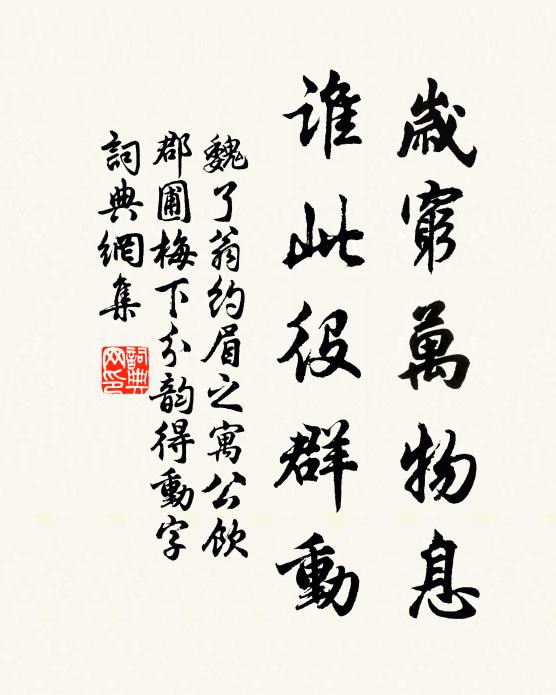 歲窮萬物息
誰此役群動
魏了翁約眉之寓公飲
郡圃梅下分韵得動字
詞典網集
詞典
网印